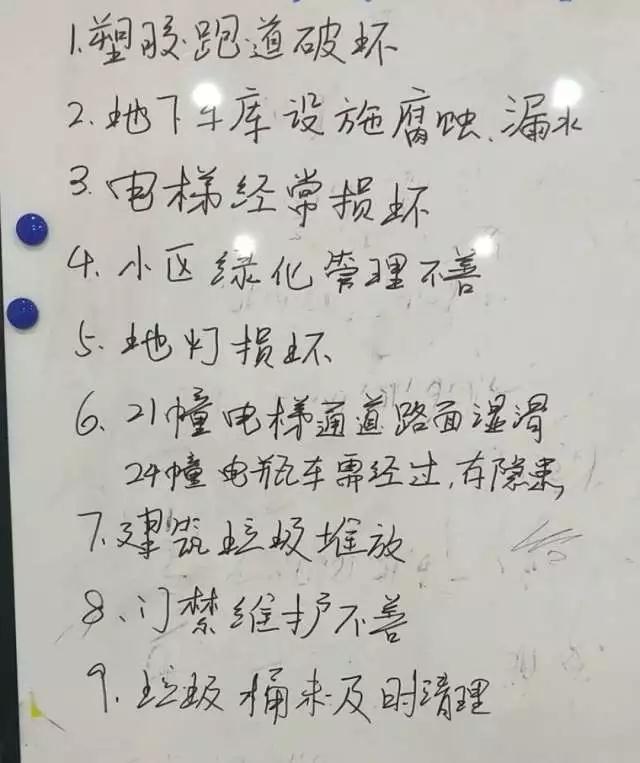 1.塑胶跑道破坏
2.地下车库设施腐蚀、漏水
3.电梯经常损坏
4.小区绿化管理不善
5.地灯损坏
6、21幢电梯通道路面湿滑
24幢电瓶车需经过,存隐患,
7.建筑垃圾堆放
8、门禁维护不善
9.垃圾桶未及时清理